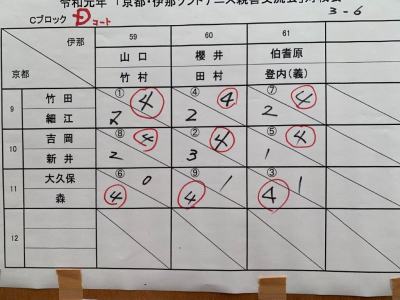 令和元年 「京都・伊那ソフトテニス親善交流会」対校
3-6
Cブロック D コート
伊那 59 60 61
京都 山口 櫻井 伯耆原
竹村 田村 登内(義)
9 竹田 ① 4 ④ 4 ⑦ 4
細江 2 2 2
10 吉岡 ⑧ 4 ② 4 ⑤ 4
新井 2 3 1
11 大久保 ⑥ 0 ⑨ 1 ③ 1
森 4 4 4
12